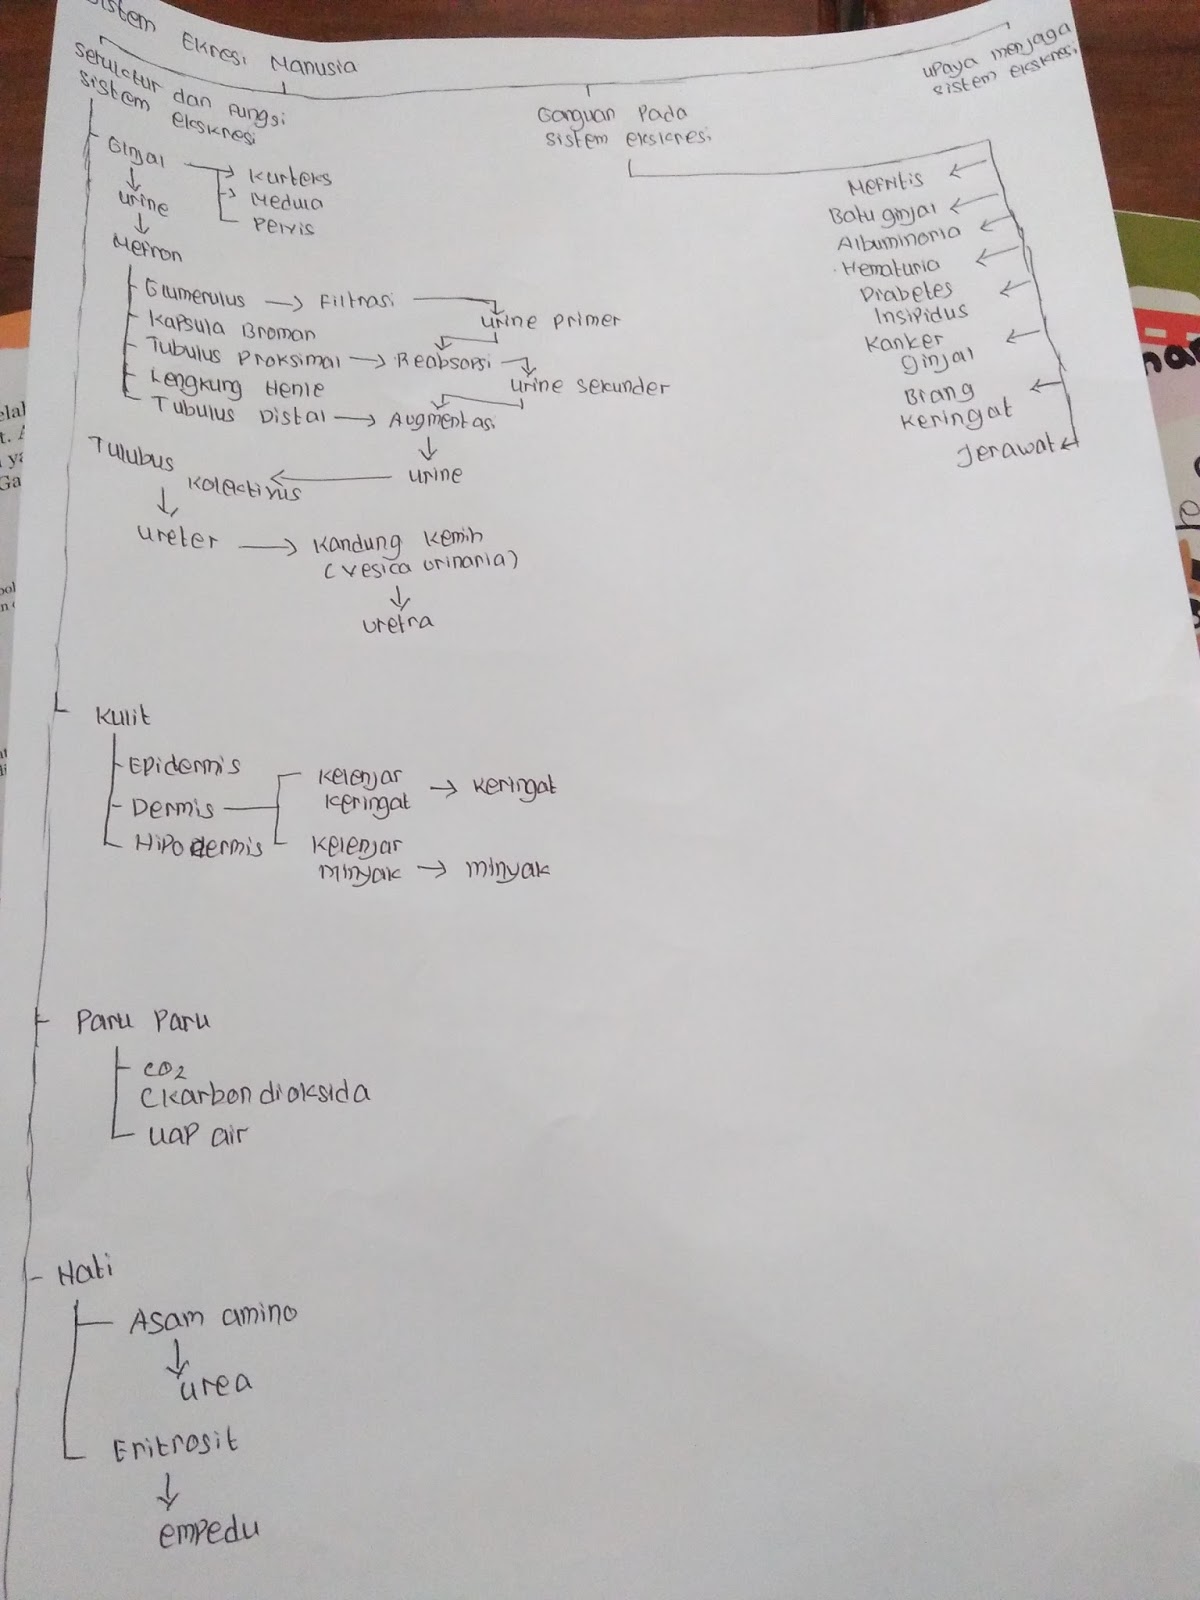 Sistem Ekresi Manusia
Setruktur dan Fungsi
sistem ekskresi
Ganguan Pada
sistem ekskresi
upaya menjaga
sistem ekskresi
Ginjal
Kurteks
Medula
Pelvis
urine
Nefron
Glumerulus → Filtrasi
urine primer
Kapsula Broman
Tubulus Proksimal → Reabsorsi
urine sekunder
Lengkung Henle
Tubulus Distal → Augmentasi
urine
Tulubus
Kolectivus
ureter → Kandung Kemih
(vesica urinaria)
uretra
Nefritis
Batu ginjal
Albuminoria
Hematuria
Diabetes
Insipidus
Kanker
ginjal
Biang
Keringat
Jerawat
Kulit
Epidermis
Dermis
Hipodermis
Kelenjar
Keringat → Keringat
Kelenjar
Minyak → Minyak
Paru Paru
CO2
(Karbon dioksida
uap air
Hati
Asam amino
urea
Eritrosit
empedu